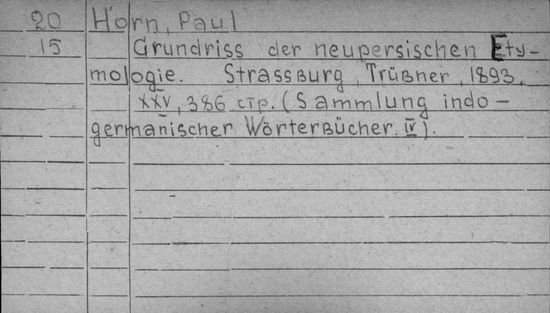 20 Horn, Paul
15 Grundriss der neupersischen Ety-
mologie. Strassburg, Trüßner, 1893.
XXV, 386 стр. (Sammlung indo-
germanischer Wörterbücher. IV).